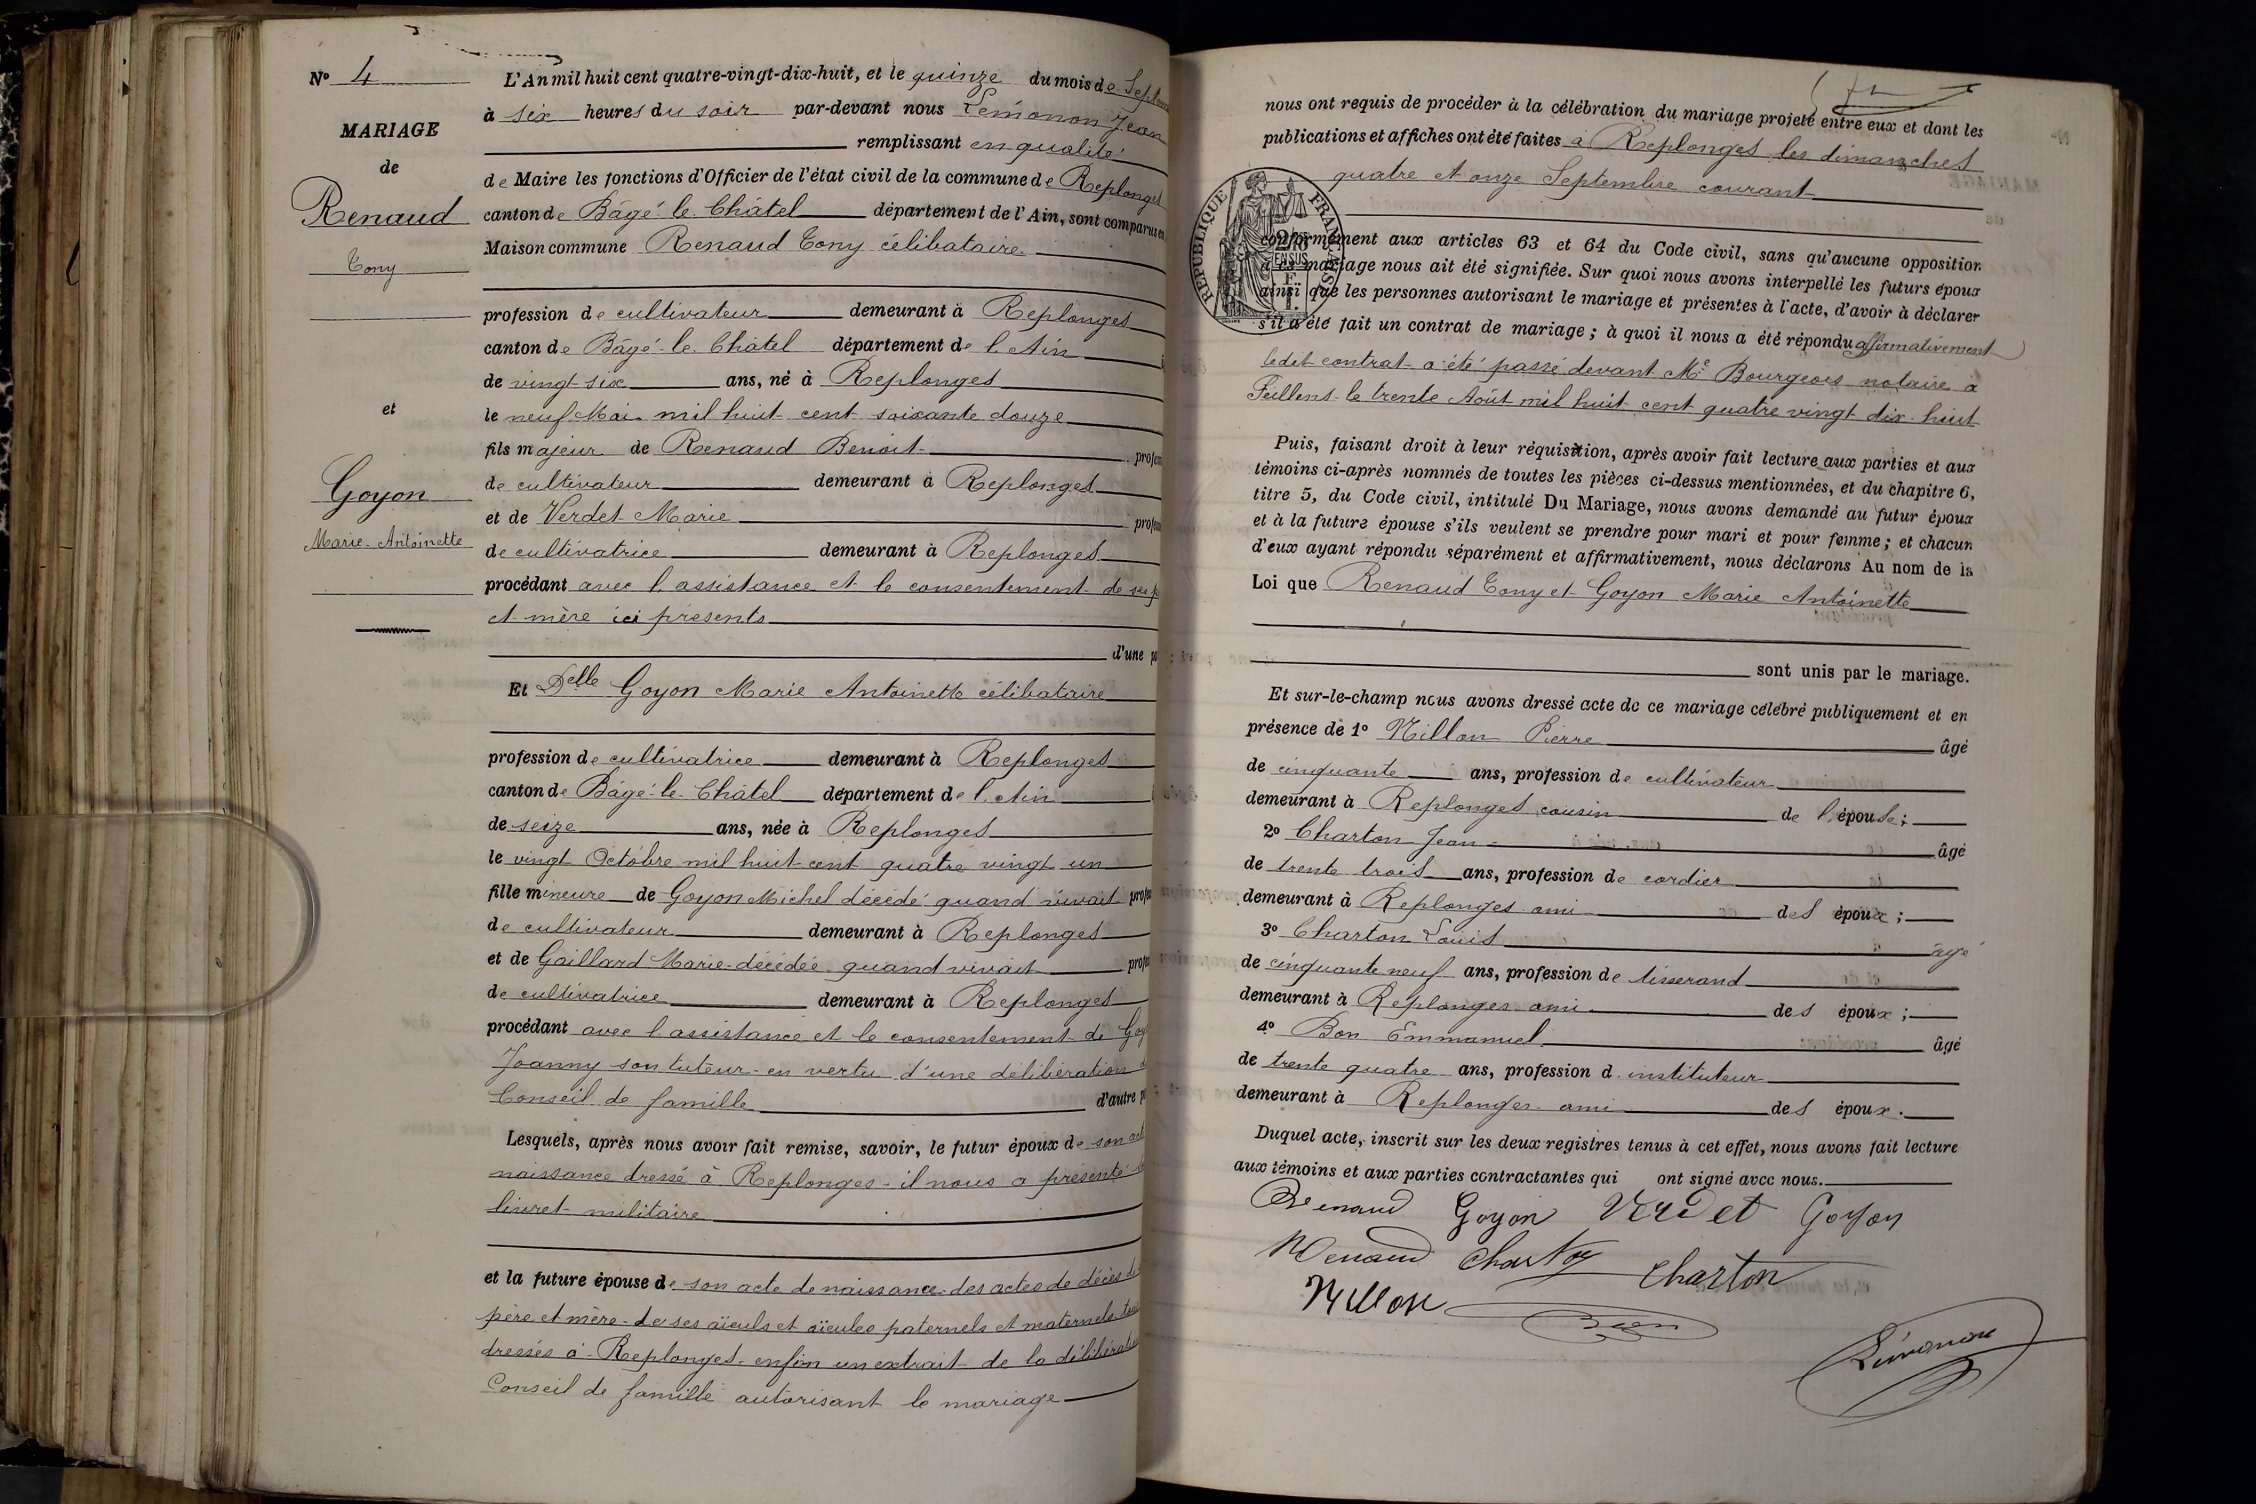 Nº 4
MARIAGE
de
Renaud
Tony
et
Goyon
Marie-Antoinette
L'An mil huit cent quatre-vingt-dix-huit, et le quinze du mois de Septem
à six heures du soir par-devant nous Lemonon Jean
remplissant en qualité
de Maire les fonctions d'Officier de l'état civil de la commune de Replonges
canton de Bâgé-le-Châtel département de l'Ain, sont comparus en
Maison commune Renaud Tony célibataire
profession de cultivateur demeurant à Replonges
canton de Bâgé-le-Châtel département de l'Ain
de vingt-six ans, né à Replonges
le neuf Mai mil huit cent soixante douze
fils majeur de Renaud Benoit profes
de cultivateur demeurant à Replonges
et de Verdet Marie profes
de cultivatrice demeurant à Replonges
procédant avec l'assistance et le consentement de ses p
et mère ici présents
d'une pa
Et Delle Goyon Marie Antoinette célibataire
profession de cultivatrice demeurant à Replonges
canton de Bâgé-le-Châtel département de l'Ain
de seize ans, née à Replonges
le vingt Octobre mil huit cent quatre vingt un
fille mineure de Goyon Michel décédé quand vivait profes
de cultivateur demeurant à Replonges
et de Gaillard Marie décédée quand vivait profes
de cultivatrice demeurant à Replonges
procédant avec l'assistance et le consentement de Goy
Joanny son tuteur en vertu d'une délibération
Conseil de famille d'autre pa
Lesquels, après nous avoir fait remise, savoir, le futur époux de son act
naissance dressé à Replonges - il nous a présenté
livret militaire
et la future épouse de son acte de naissance des actes de décès de
père et mère - de ses aïeuls et aïeules paternels et maternels
dressés à Replonges - enfin un extrait de la délibération
Conseil de famille autorisant le mariage
nous ont requis de procéder à la célébration du mariage projeté entre eux et dont les
publications et affiches ont été faites à Replonges les dimanches
quatre et onze Septembre courant
RÉPUBLIQUE FRANÇAISE
conformément aux articles 63 et 64 du Code civil, sans qu'aucune opposition
à ce mariage nous ait été signifiée. Sur quoi nous avons interpellé les futurs époux
ainsi que les personnes autorisant le mariage et présentes à l'acte, d'avoir à déclarer
s'il a été fait un contrat de mariage ; à quoi il nous a été répondu affirmativement
ledit contrat a été passé devant Me Bourgeois notaire à
Feillens le trente Août mil huit cent quatre vingt dix-huit
Puis, faisant droit à leur réquisition, après avoir fait lecture aux parties et aux
témoins ci-après nommés de toutes les pièces ci-dessus mentionnées, et du chapitre 6,
titre 5, du Code civil, intitulé Du Mariage, nous avons demandé au futur époux
et à la future épouse s'ils veulent se prendre pour mari et pour femme ; et chacun
d'eux ayant répondu séparément et affirmativement, nous déclarons Au nom de la
Loi que Renaud Tony et Goyon Marie Antoinette
sont unis par le mariage.
Et sur-le-champ nous avons dressé acte de ce mariage célébré publiquement et en
présence de 1º Nillon Pierre âgé
de cinquante ans, profession de cultivateur
demeurant à Replonges cousin de l'épouse ;
2º Charton Jean âgé
de trente trois ans, profession de cordier
demeurant à Replonges ami des époux ;
3º Charton Louis âgé
de cinquante neuf ans, profession de tisserand
demeurant à Replonges ami des époux ;
4º Bon Emmanuel âgé
de trente quatre ans, profession d instituteur
demeurant à Replonges ami des époux.
Duquel acte, inscrit sur les deux registres tenus à cet effet, nous avons fait lecture
aux témoins et aux parties contractantes qui ont signé avec nous.
Renaud Goyon Verdet Goyon
Renaud Charton Charton
Nillon Bon
Lémonon